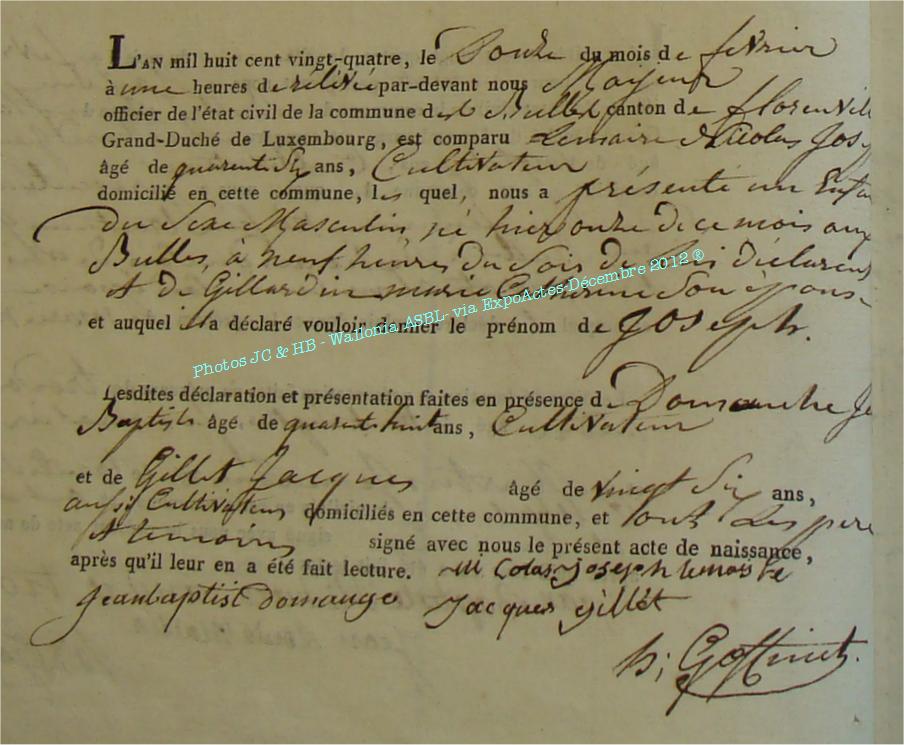 L'AN mil huit cent vingt-quatre, le Douze du mois de fevrier
à une heures de rélivée par-devant nous Mayeur
officier de l'état civil de la commune des Bulles canton de florenvil
Grand-Duché de Luxembourg, est comparu Lemaire Nicolas Jos
âgé de quarente Six ans, Cultivateur
domicilié en cette commune, les quel, nous a présente un Enfa
du Sexe Masculin né hier onze de ce mois aux
Bulles, à neuf heures du Soir de lui déclarent
et de Gillardin marie Son épouse
et auquel il a déclaré vouloir donner le prénom de Joseph.
Photos JC & HB - Wallonia ASBL- via ExpoActes-Décembre 2012 ®
Lesdites déclaration et présentation faites en présence de Domanche Je
Baptiste âgé de quarent huit ans, Cultivateur
et de Gillet Jacques âgé de vingt Six ans,
aussi Cultivateur domiciliés en cette commune, et ont Les pere
et temoins signé avec nous le présent acte de naissance,
après qu'il leur en a été fait lecture. Colas joseph lemaire
Jeanbaptist domange Jacques gillet
h; Goffinet.